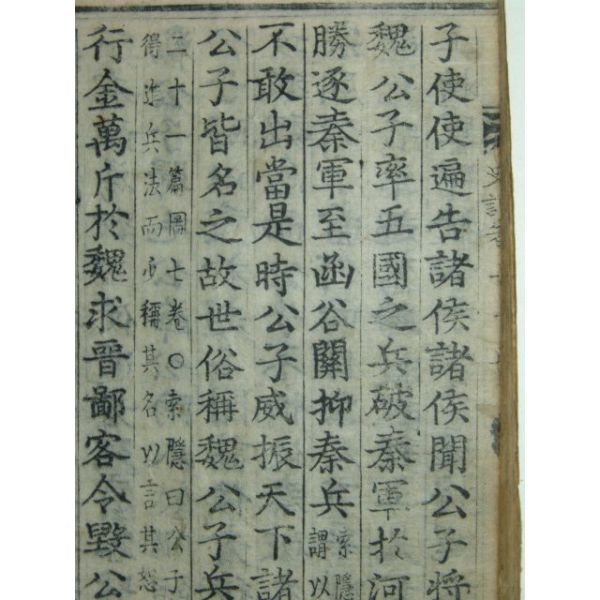 子使使遍告諸侯諸侯聞公子將
魏公子率五國之兵破秦軍於河
勝逐秦軍至函谷關抑秦兵
索隱
謂以
不敢出當是時公子威振天下諸
公子皆名之故世俗稱魏公子兵
二十一篇圖七卷○索隱曰公子
得進兵法而必稱其名以言其恕
行金萬斤於魏求晉鄙客令毀公